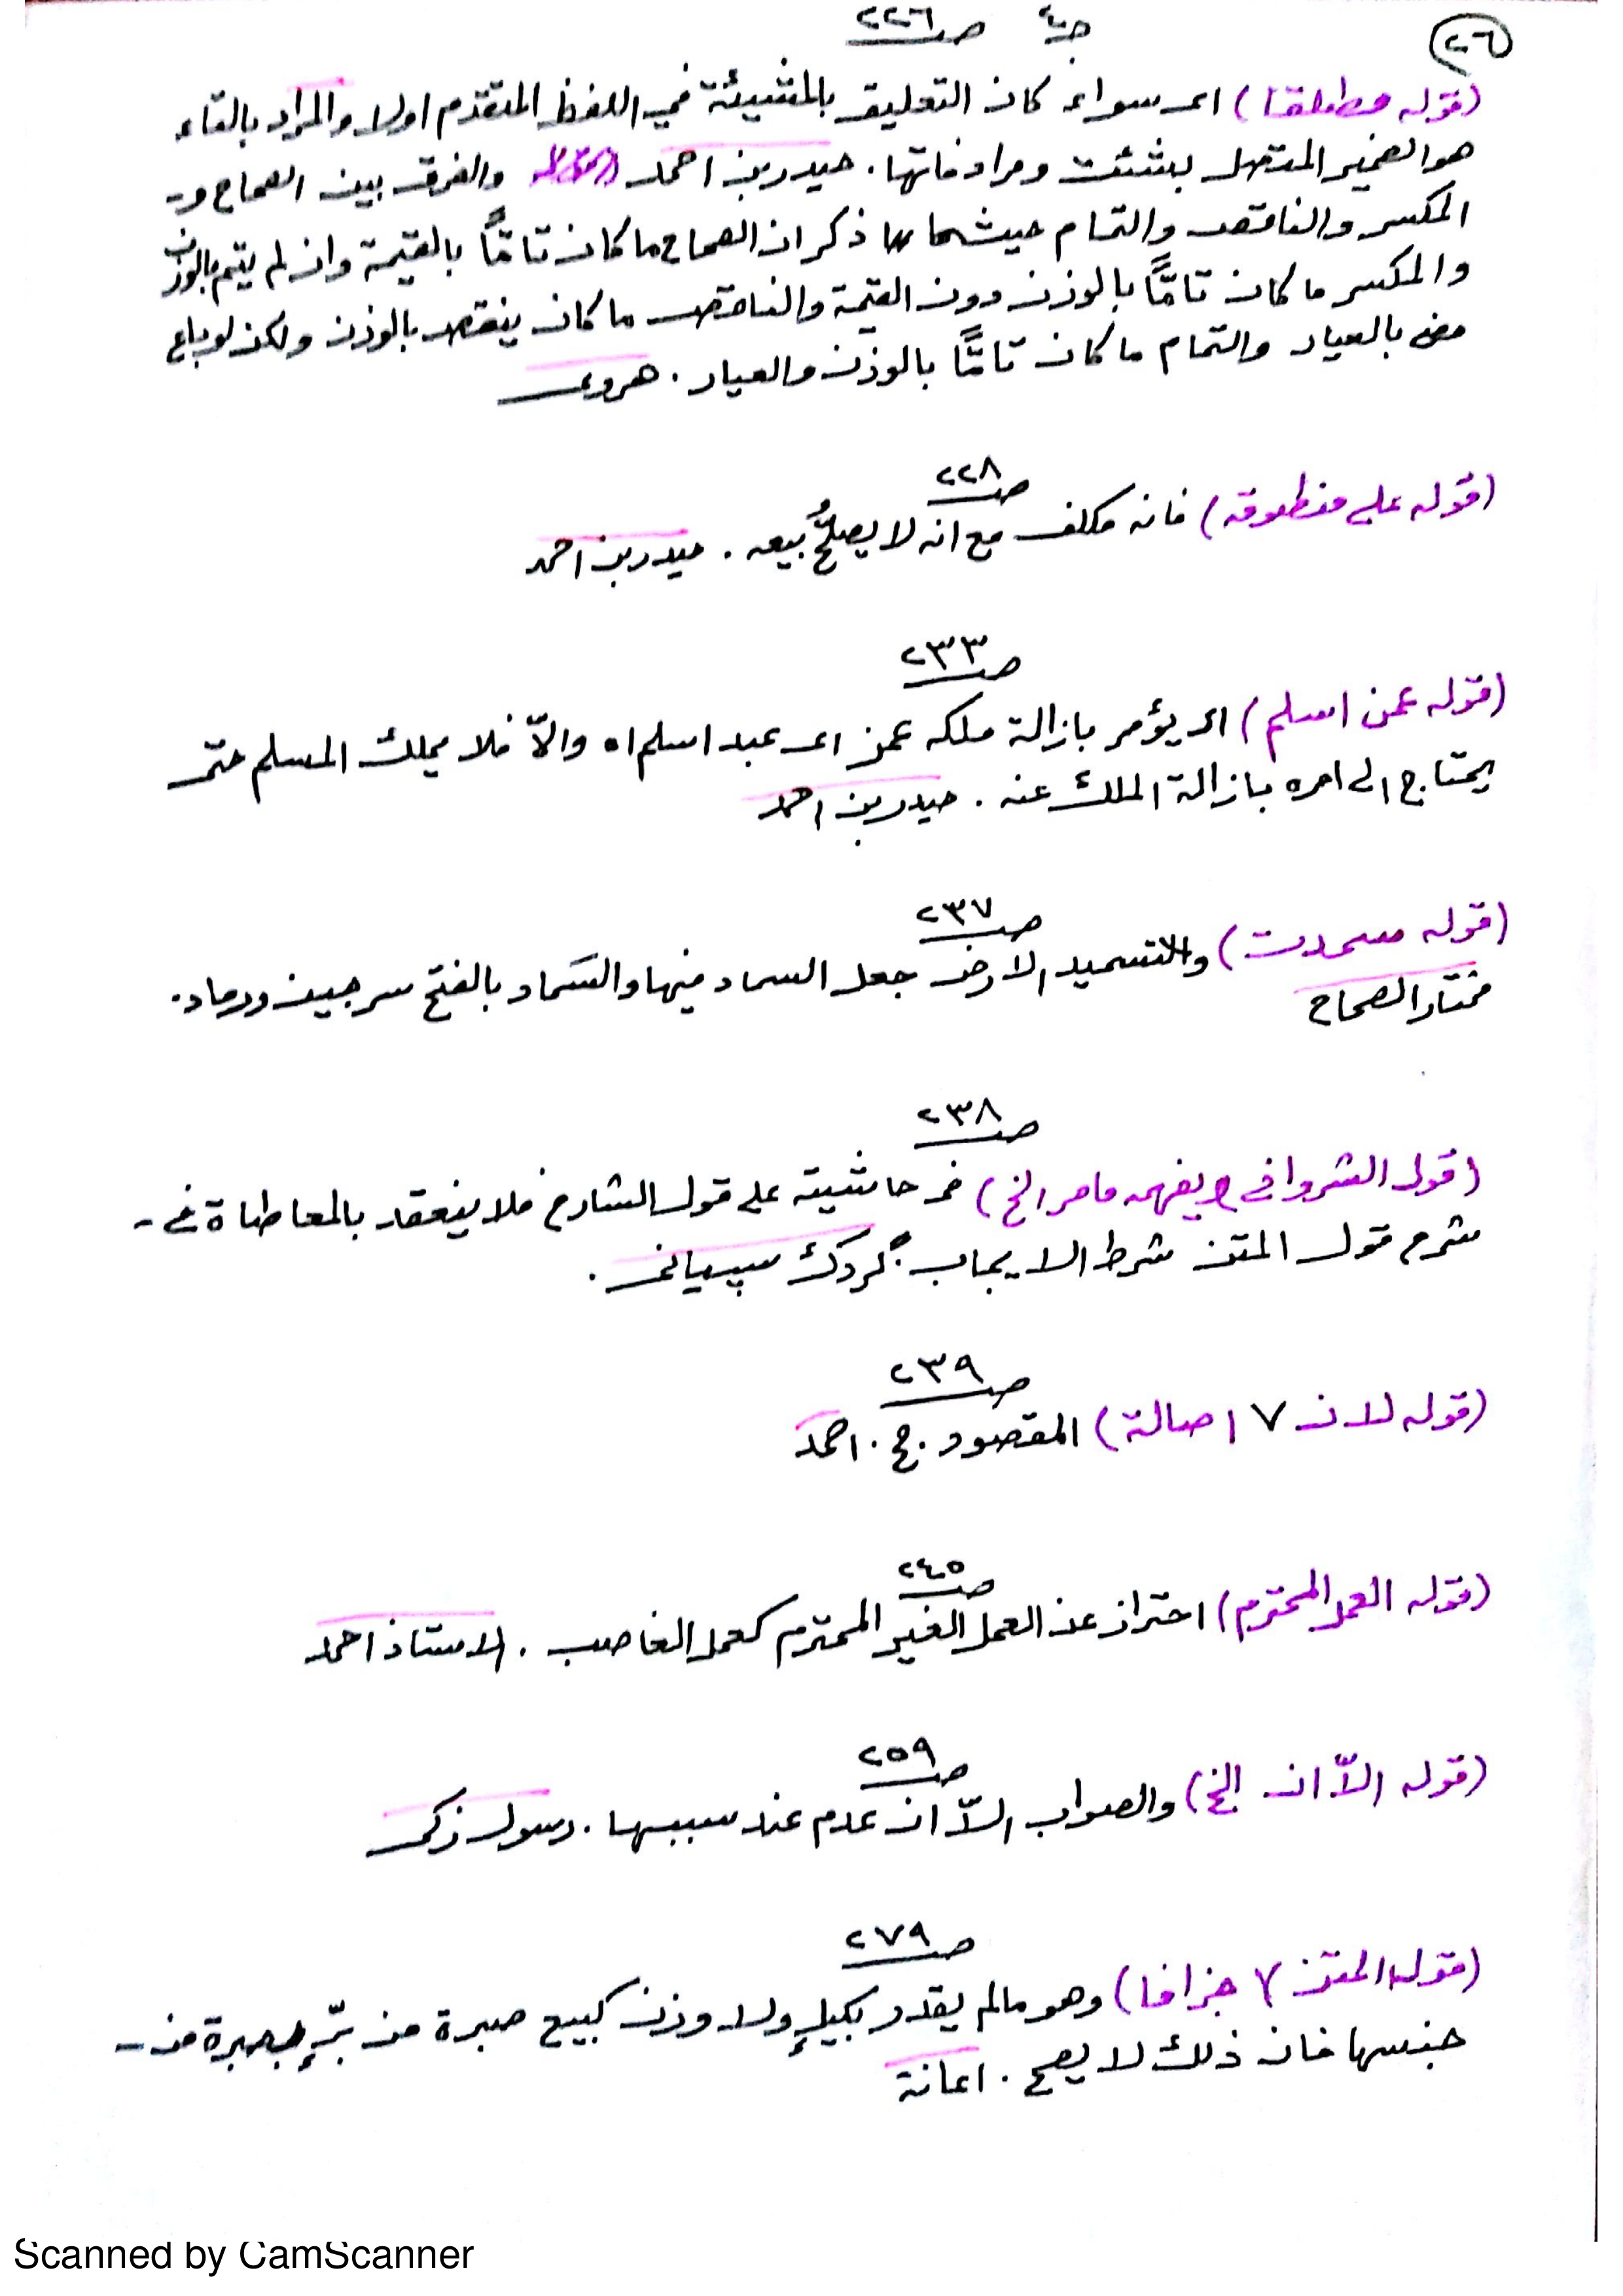 ٢٦
ج٤ ص ٢٢٦
(قوله مطلقا) اى سواء كان التعليق بالمشيئة في اللفظ المتقدم اولا والمراد بالتاء
هو الضمير المتصل بشئت ومرادفاتها . حيدر بن احمد والفرق بين الصحاح و-
المكسر والناقص والتمام حيثما ذكر ان الصحاح ما كان تامّاً بالقيمة وان لم يتم بالوزن
والمكسر ما كان تامّاً بالوزن دون القيمة والناقص ما كان ينقص بالوزن ولكن لو باع
بالعيار والتمام ما كان تامّاً بالوزن والعيار . هروى
ص ٢٢٨
(قوله على منطوقه) فانه مكلف مع انه لا يصلُح بيعه . حيدر بن احمد
ص ٢٣٣
(قوله عمن اسلم) اى يؤمر بازالة ملكه عمن اى عبد اسلم اه والاّ فلا يملك المسلم حتى
يحتاج الى امره بازالة الملك عنه . حيدر بن احمد
ص ٢٣٧
(قوله سمدت) والتسميد الارض جعل السماد فيها والسَماد بالفتح سرجين ورماد .
مختار الصحاح
ص ٢٣٨
(قول الشرواني ويفهمه مامر الخ) فى حاشيته على قول الشارح فلا ينعقد بالمعاطاة فى -
شرح قول المتن شرط الايجاب . گردك سپيانى .
ص ٢٣٩
(قوله لان ٧ اصالة) المقصود . ج . احمد
ص ٢٤٥
(قوله العمل المحترم) احتراز عن العمل الغير المحترم كعمل الغاصب . الاستاذ احمد
ص ٢٥٩
(قوله الاّ ان الخ) والصواب الاّ ان علم عند سببها . رسول زكى
ص ٢٧٩
(قول المتن ٧ جزافا) وهو مالم يقدر بكيلٍ ولا وزن كبيع صبرة من برٍّ بصبرة من -
جنسها فان ذلك لا يصح . اعانة
Scanned by CamScanner